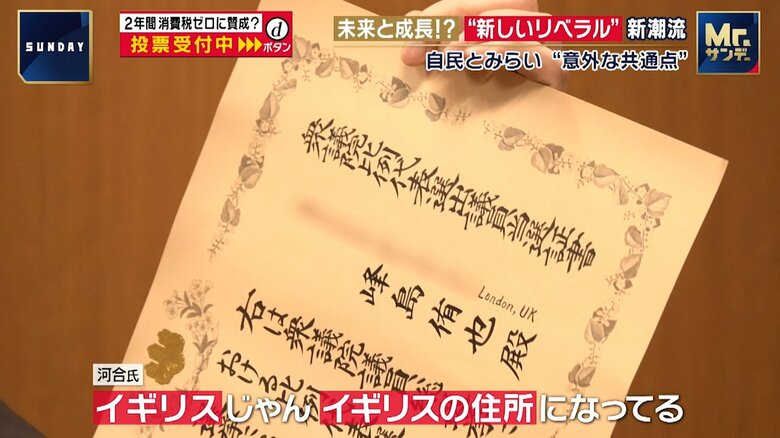 SUNDAY
2年間 消費税ゼロに賛成?
投票受付中
d
ボタン
未来と成長!? “新しいリベラル” 新潮流
自民とみらい “意外な共通点”
Mr.
サンデー
衆議院比例代表選出議員当選証書
London, UK
峰島侑也殿
右は衆議院議員
おける比例
河合氏
イギリスじゃん イギリスの住所になってる